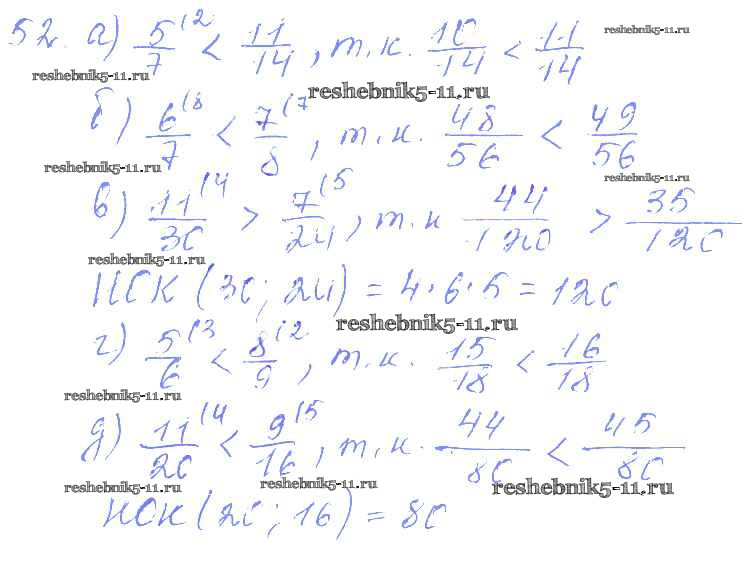 52. а) 5/7 (2 < 11/14, т.к. 10/14 < 11/14
reshebnik5-11.ru
reshebnik5-11.ru
reshebnik5-11.ru
б) 6/7 (8 < 7/8 (7, т.к. 48/56 < 49/56
reshebnik5-11.ru
reshebnik5-11.ru
в) 11/30 (4 > 7/24 (5, т.к 44/120 > 35/120
reshebnik5-11.ru
НОК (30; 24) = 4·6·5 = 120
reshebnik5-11.ru
г) 5/6 (3 < 8/9 (2, т.к. 15/18 < 16/18
reshebnik5-11.ru
д) 11/20 (4 < 9/16 (5, т.к. 44/80 < 45/80
reshebnik5-11.ru
reshebnik5-11.ru
reshebnik5-11.ru
НОК (20; 16) = 80